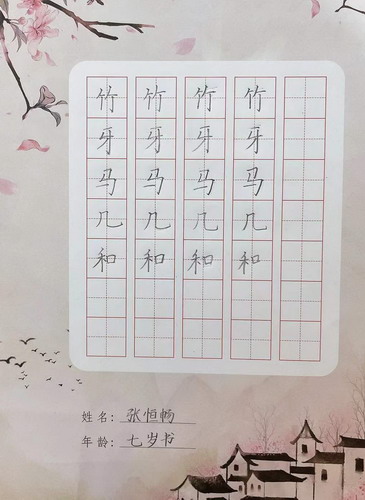 竹 竹 竹 竹
牙 牙 牙 牙
马 马 马 马
几 几 几 几
和 和 和 和
姓名：张恒畅
年龄：七岁书